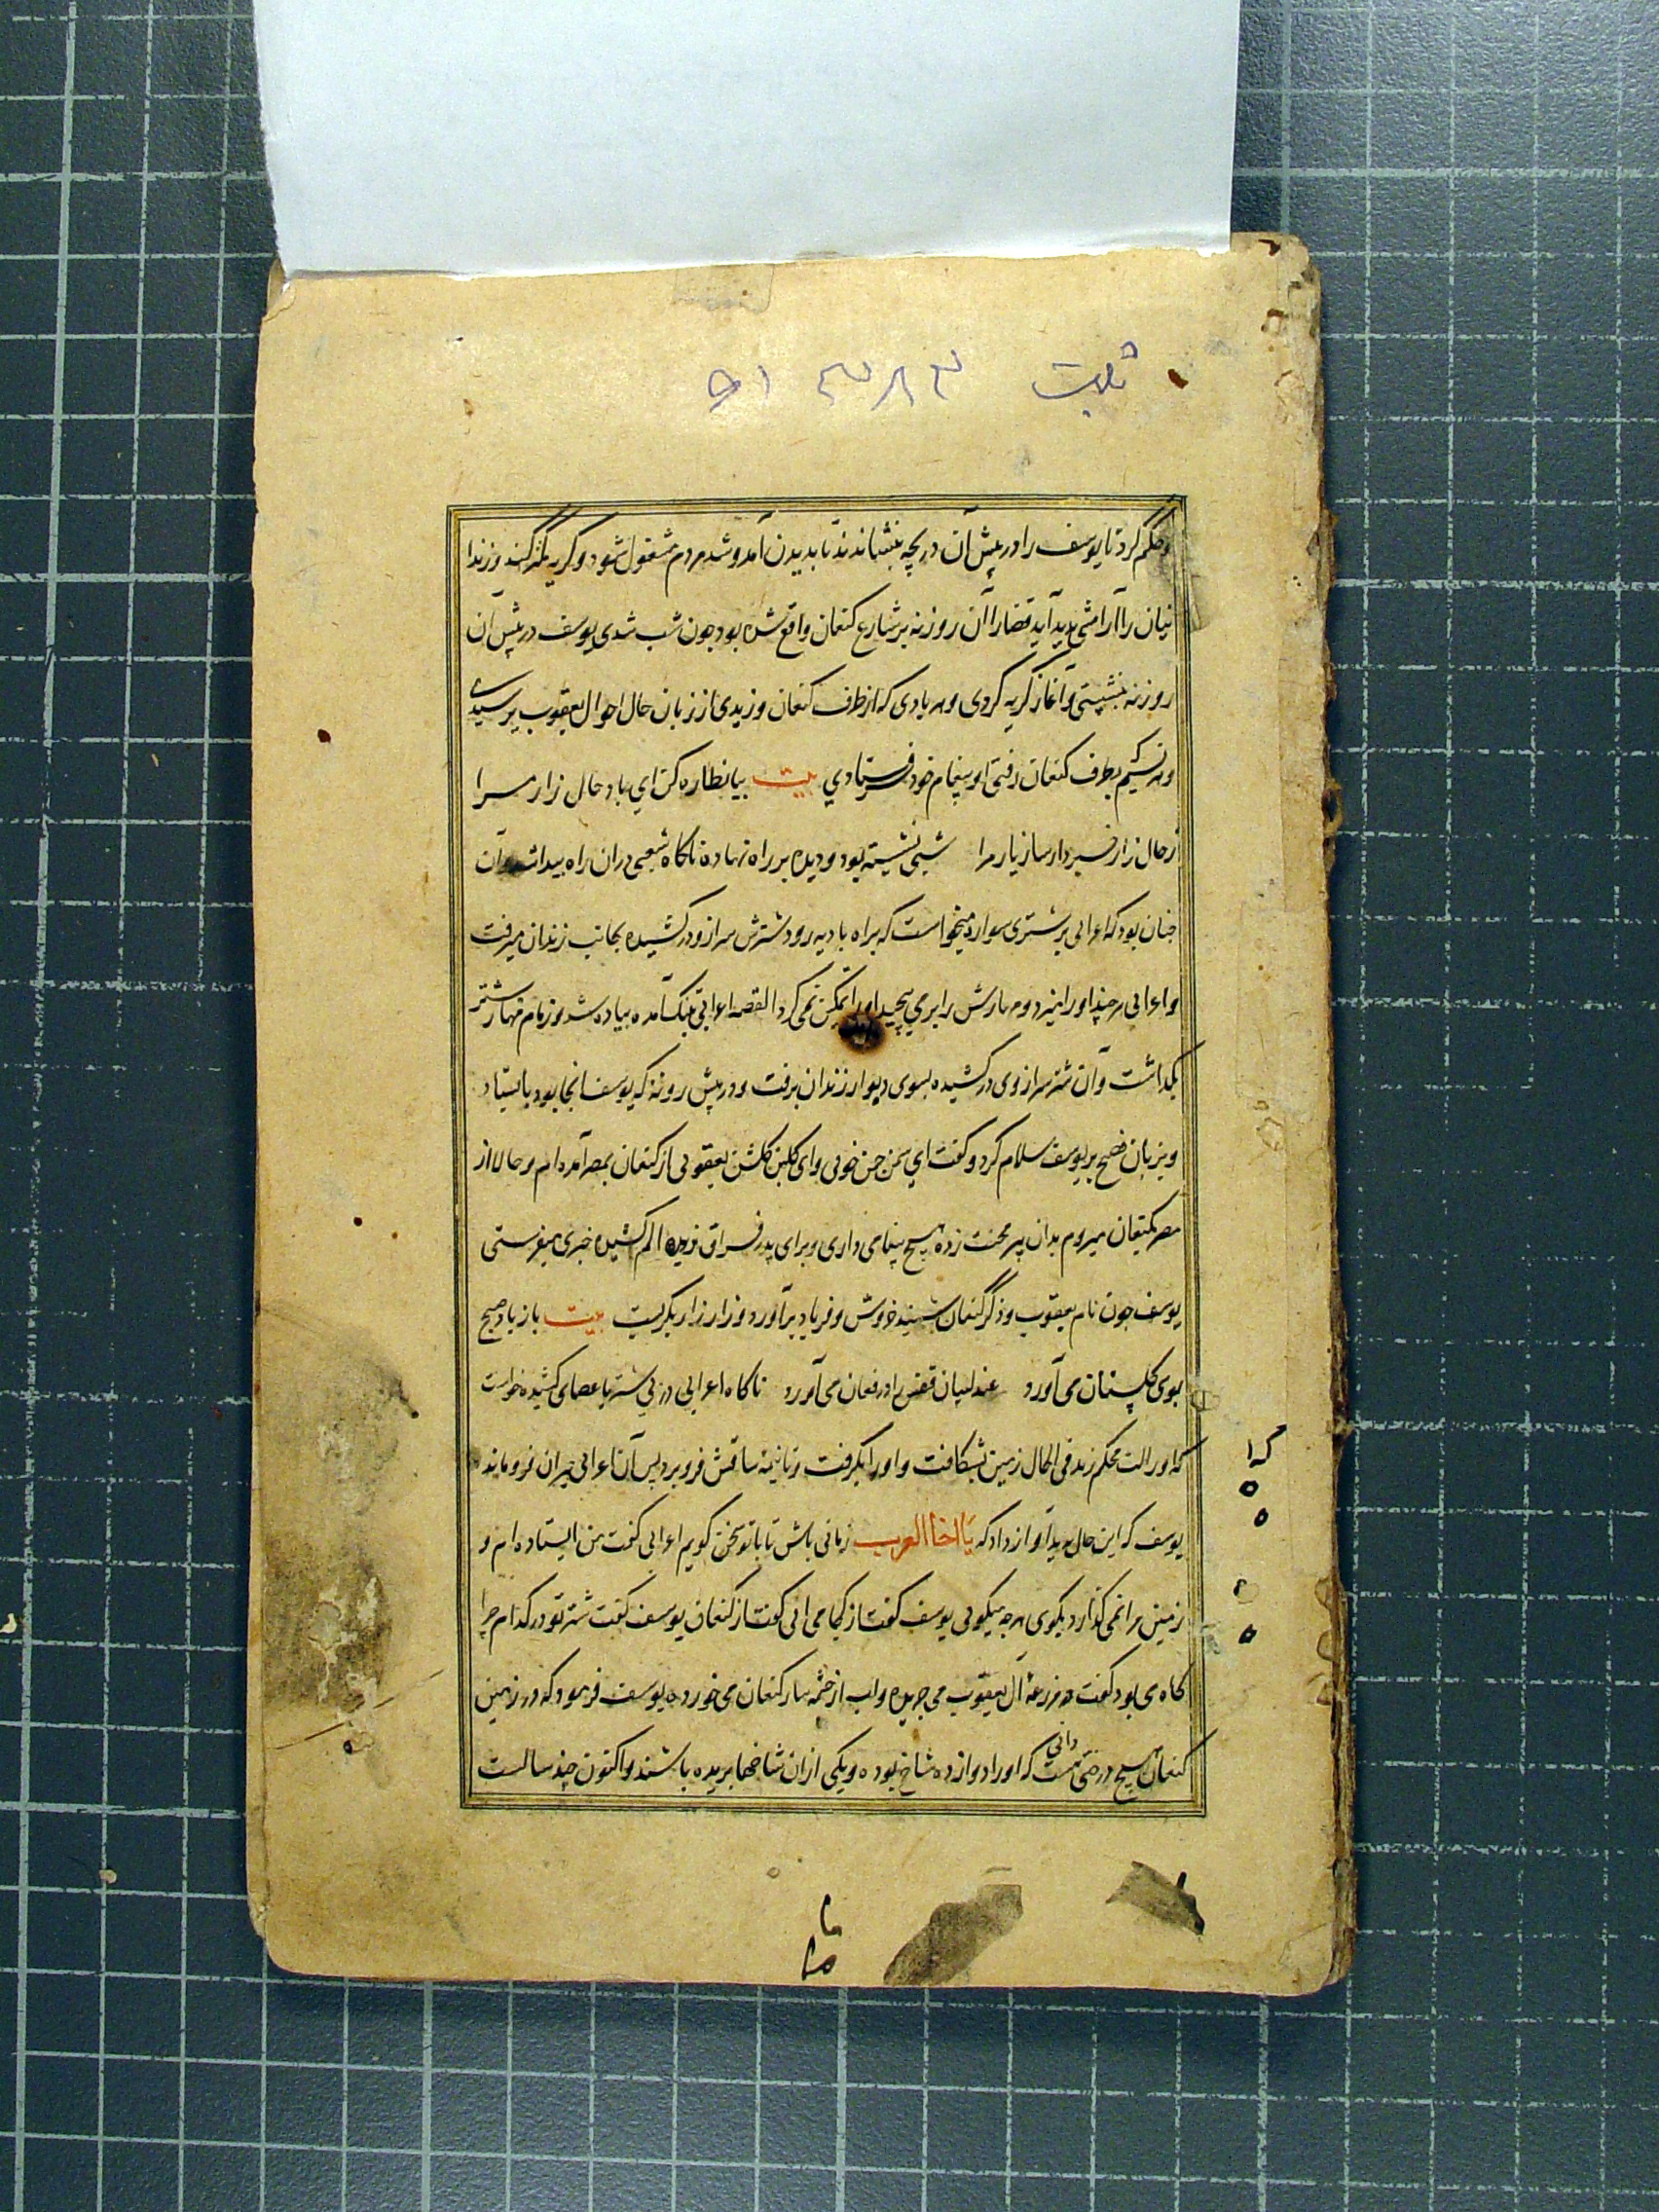 ثبت ۳۸۳ ۵۱
و حکم کرد تا یوسف را در پیش آن دریچه بنشاندند تا بدیدن آمد و شد مردم مشغول شود و گریه کمتر کند و زندا
نیان را آرامشی پدید آید قضا را آن روزنه بر شارع کنعان واقع شده بود چون شب شدی یوسف در پیش آن
روزنه بنشستی و آغاز گریه کردی و هر بادی که از طرف کنعان وزیدی از زبان حال احوال یعقوب پرسیدی
و هر نسیم بطرف کنعان رفتی او پیغام خود فرستادی بیت بیا نظاره کن ای باد حال زار مرا
ز حال زار خبردار ساز یار مرا شبی نشسته بود و دیده بر راه نهاده ناکاه شبحی دران راه پیدا شد و آن
چنان بود که اعرابی بر شتری سوار میخواست که براه بادیه رود شترش سر ازو درکشیده بجانب زندان میرفت
و اعرابی هر چند او را میزد و مهارش را بر می پیچید او را تمکین نمی کرد القصه اعرابی بتنگ آمده پیاده شد و زمام مهار شتر
بگذاشت و آن شتر سر از وی درکشیده بسوی دیوار زندان برفت و در پیش روزنه که یوسف آنجا بود بایستاد
و بزبان فصیح بر یوسف سلام کرد و گفت ای سمن چمن خوبی و ای گلبن گلشن یعقوبی از کنعان بمصر آمده ام و حالا از
مصر بکنعان میروم بدان پیر محنت زده هیچ پیغامی داری و برای پدر فراق دیده الم کشیده خبری میفرستی
یوسف چون نام یعقوب و ذکر کنعان شنید خروش و فریاد برآورد و زار زار بگریست بیت باز باد صبح
بوی گلستان می آورد عندلیبان قفس را در فغان می آورد ناکاه اعرابی در پی شتر با عصای کشیده خواست
که او را لت محکم زند فی الحال زمین بشکافت و او را بگرفت و تا نیمه ساقش فرو برد پس آن اعرابی حیران فرو ماند
یوسف که این حال بدید آواز داد که یا اخا العرب زمانی باش تا با تو سخن گویم اعرابی گفت من ایستاده ام و
زمین مرا نمی گذارد بگوی هر چه میگویی یوسف گفت از کجا می آئی گفت از کنعان یوسف گفت شتر تو در کدام چرا
گاه می بود گفت در مزرعه آل یعقوب می چریده و آب از چشمه سار کنعان می خورده یوسف فرمود که در زمین
کنعان هیچ درختی دانی هست که او را دوازده شاخ بوده و یکی از آن شاخها بریده باشند و اکنون چند سالست